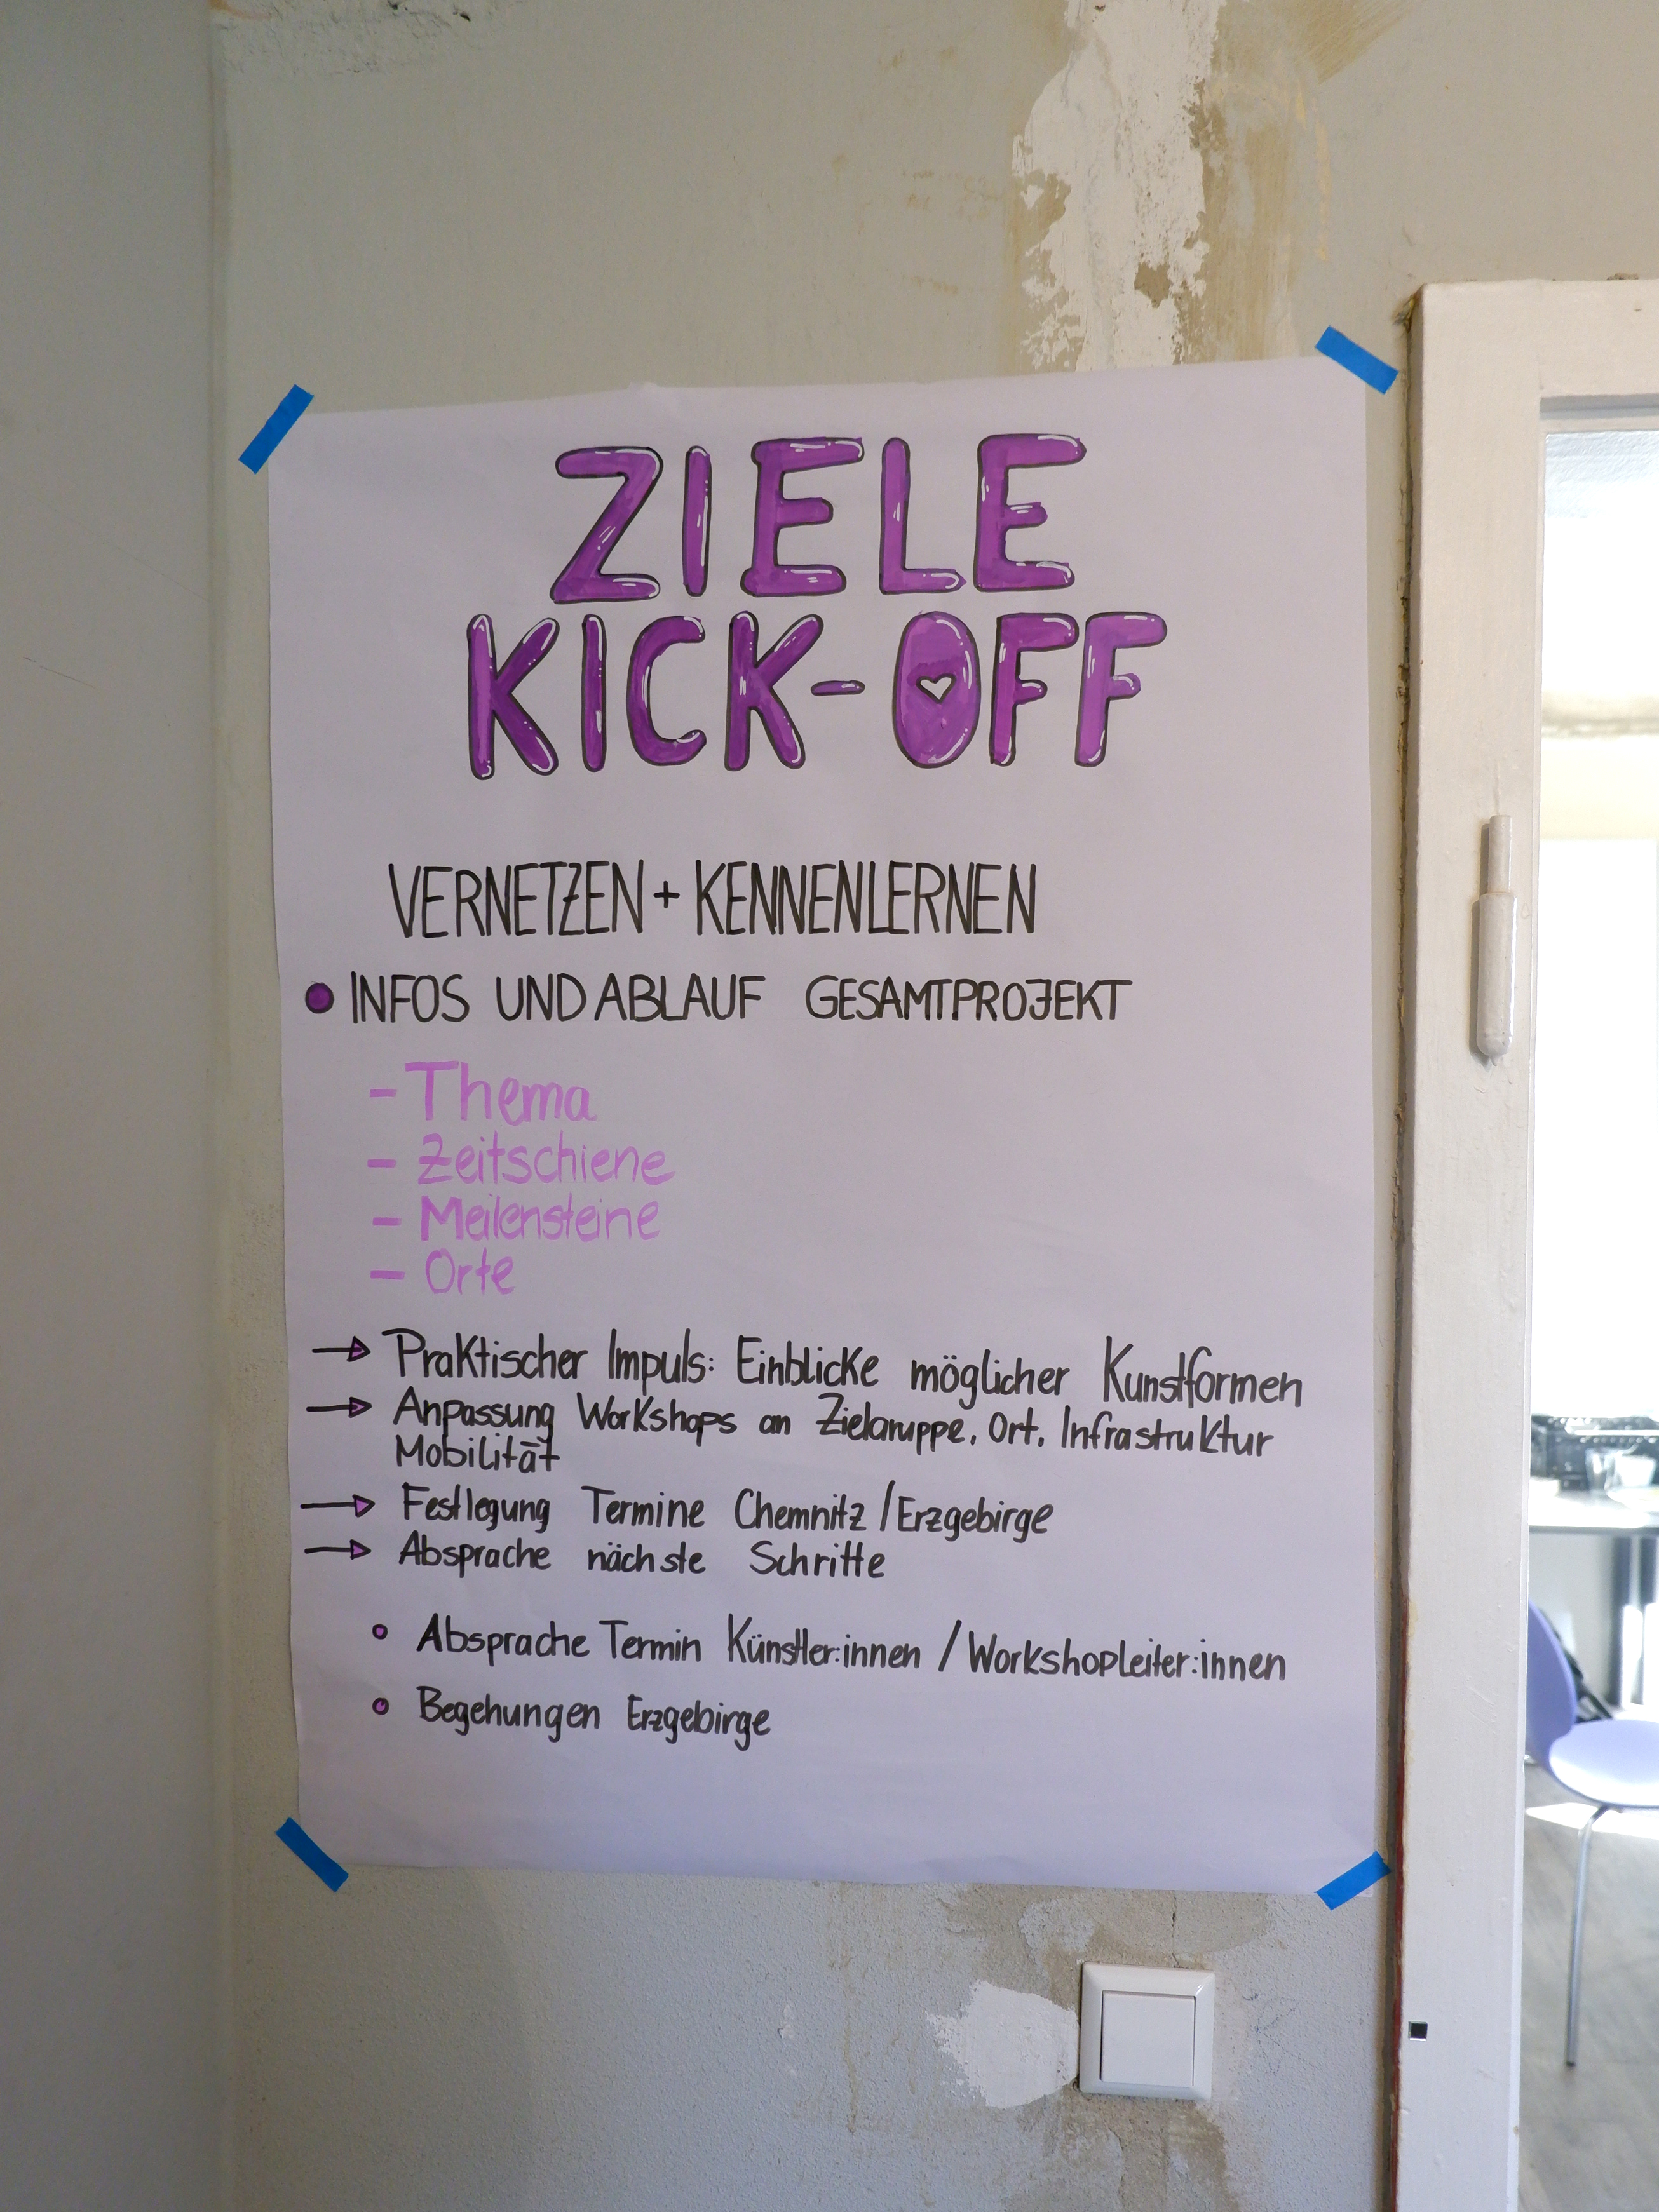 ZIELE
KICK-OFF
VERNETZEN + KENNENLERNEN
INFOS UND ABLAUF GESAMTPROJEKT
- Thema
- Zeitschiene
- Meilensteine
- Orte
→ Praktischer Impuls: Einblicke möglicher Kunstformen
→ Anpassung Workshops an Zielgruppe, Ort, Infrastruktur
Mobilität
→ Festlegung Termine Chemnitz / Erzgebirge
→ Absprache nächste Schritte
• Absprache Termin Künstler:innen / Workshopleiter:innen
• Begehungen Erzgebirge